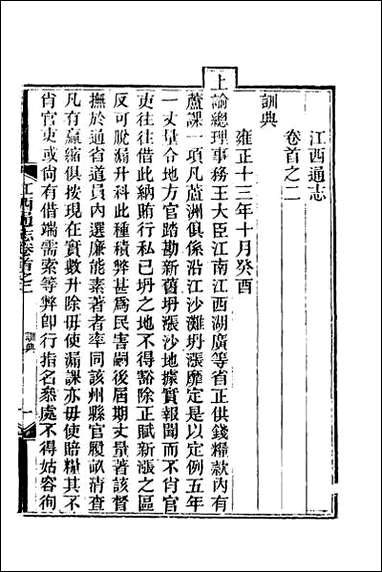 江西通志
卷首之二
訓典
雍正十三年十月癸酉
上諭總理事務王大臣江南江西湖廣等省正供錢糧款內有
蘆課一項凡蘆洲俱係沿江沙灘坍漲靡定是以定例五年
一丈量令地方官踏勘新舊坍漲沙地據實報聞而不肖官
吏往往借此納賄行私已坍之地不得豁除正賦新漲之區
反可脫漏升科此種積弊甚為民害嗣後屆期丈量著該督
撫於通省道員內選廉能素著者率同該州縣官履畝清查
凡有贏縮俱按現在實數升除毋使漏課亦毋使賠糧其不
肖官吏或尚有借端需索等弊即行指名叅處不得姑容徇
江西通志卷首之二
訓典
一